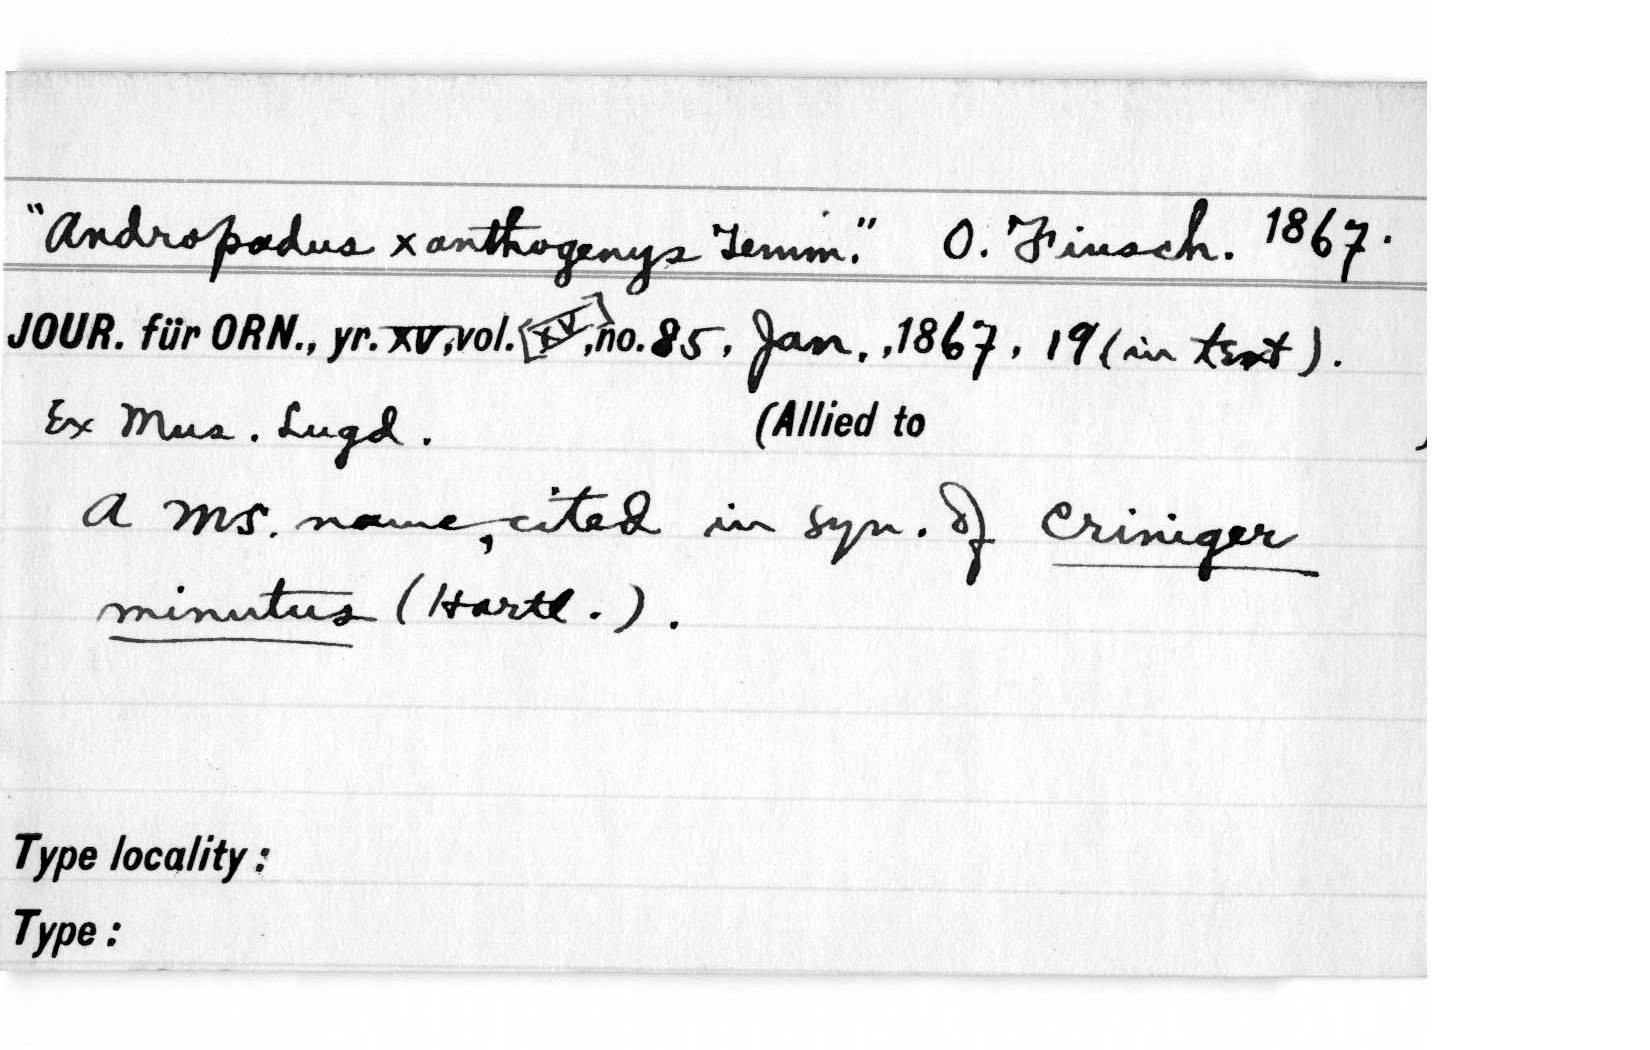 "Andropadus xanthogenys Temm." O. Finsch. 1867.
JOUR. für ORN., yr. XV, vol. [XV], no. 85, Jan., 1867, 19 (in text).
Ex Mus. Lugd. (Allied to )
A MS. name, cited in syn. of Criniger
minutus (Hartl.).
Type locality:
Type: